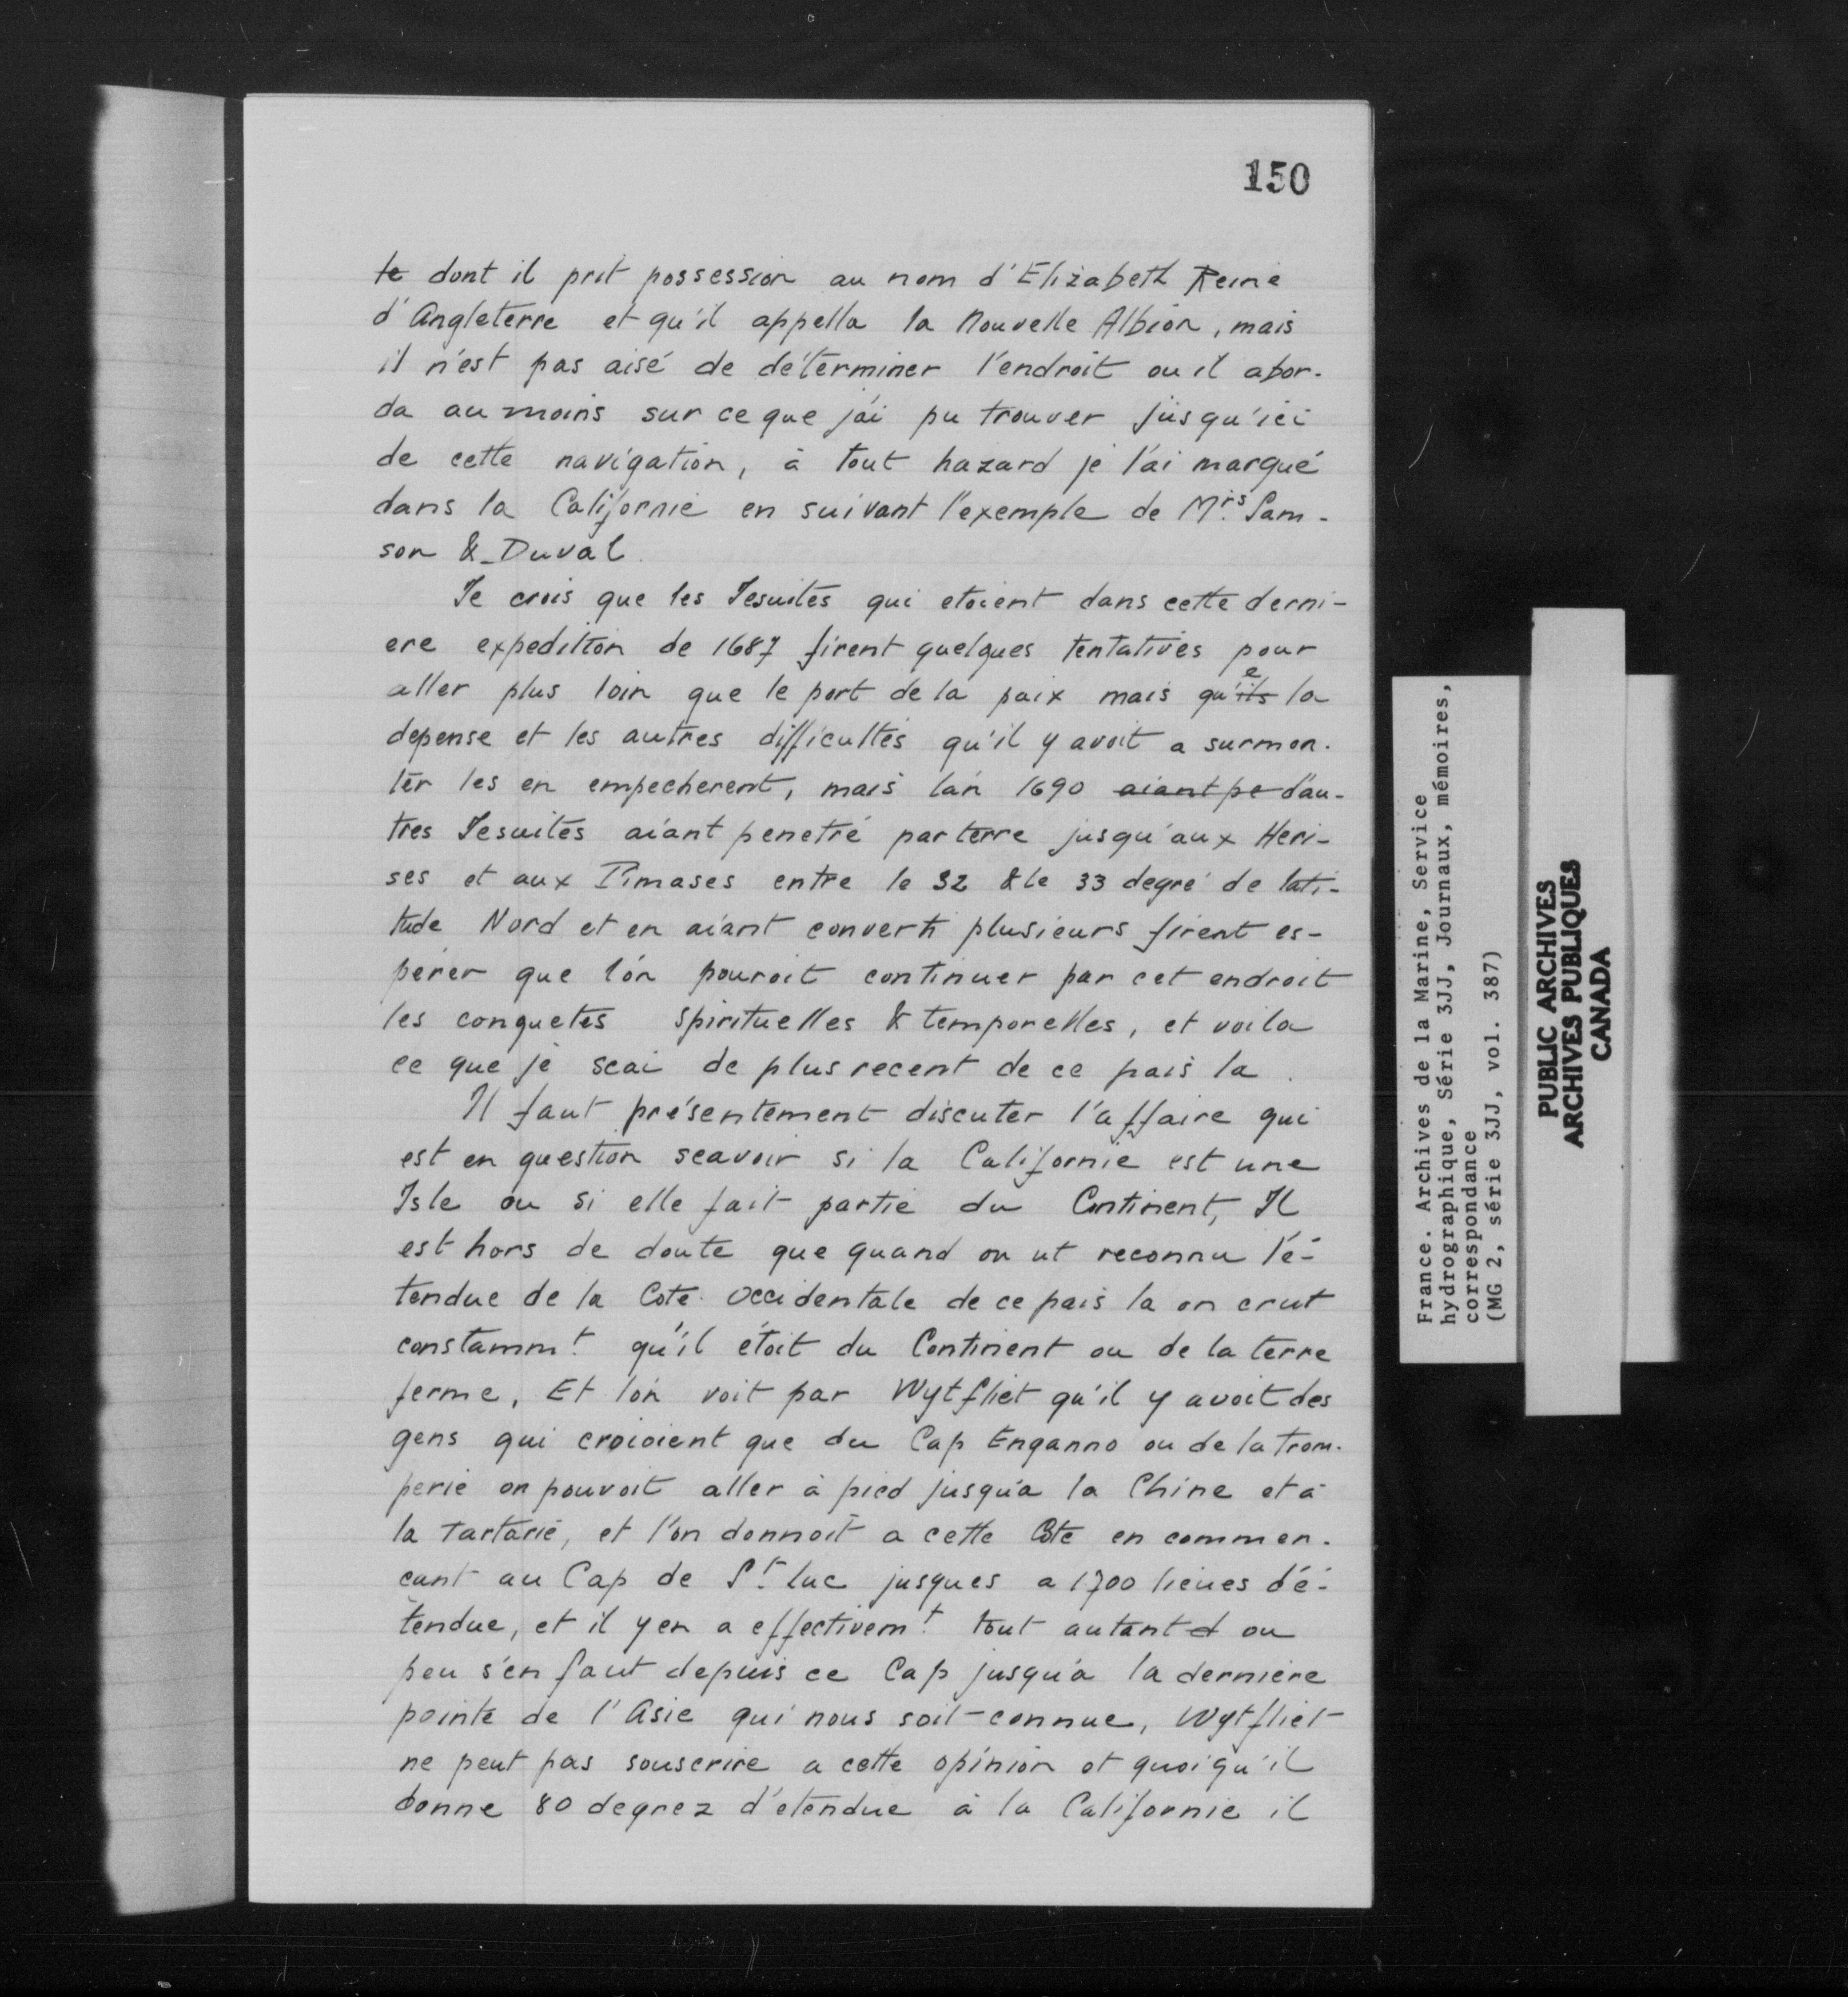 150
te dont il prit possession au nom d'Elizabeth Reine
d'Angleterre et qu'il appella la Nouvelle Albion, mais
il n'est pas aisé de déterminer l'endroit ou il abor-
da au moins sur ce que j'ai pu trouver jusqu'ici
de cette navigation, à tout hazard je l'ai marqué
dans la Californie en suivant l'exemple de Mrs. Sam-
son & Duval.
Je crois que les Jesuites qui etoient dans cette derni-
ere expedition de 1687 firent quelques tentatives pour
aller plus loin que le port de la paix mais qu'ils e la
depense et les autres difficultés qu'il y avoit a surmon-
ter les en empecherent, mais l'an 1690 aiant pe d'au-
tres Jesuites aiant penetré par terre jusqu'aux Heri-
ses et aux Pimases entre le 32 & le 33 degré de lati-
tude Nord et en aiant converti plusieurs firent es-
perer que l'on pouroit continuer par cet endroit
les conquetes spirituelles & temporelles, et voila
ce que je scai de plus recent de ce pais la.
Il faut présentement discuter l'affaire qui
est en question scavoir si la Californie est une
Isle ou si elle fait partie du Continent, Il
est hors de doute que quand on ut reconnu l'é-
tendue de la Cote occidentale de ce pais la on crut
constammt. qu'il étoit du Continent ou de la terre
ferme, Et l'on voit par Wytfliet qu'il y avoit des
gens qui croioient que du Cap Enganno ou de la trom-
perie on pouvoit aller à pied jusqu'a la Chine et à
la Tartarie, et l'on donnoit a cette Cote en commen-
cant au Cap de St. Luc jusques a 1700 lieues d'é-
tendue, et il y en a effectivemt. tout autant et ou
peu s'en faut depuis ce Cap jusqu'a la derniere
pointe de l'Asie qui nous soit connue, Wytfliet
ne peut pas souscrire a cette opinion et quoiqu'il
donne 80 degrez d'etendue à la Californie il
France. Archives de la Marine, Service
hydrographique, Série 3JJ, Journaux, mémoires,
correspondance
(MG 2, série 3JJ, vol. 387)
PUBLIC ARCHIVES
ARCHIVES PUBLIQUES
CANADA